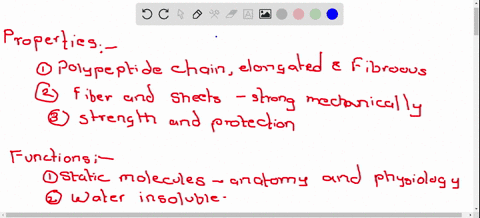 Properties:-
① Polypeptide chain, elongated & Fibroous
② Fiber and sheets - strong mechanically
③ strength and protection
Functions:-
① Static molecules - anatomy and physiology
② Water insoluble.